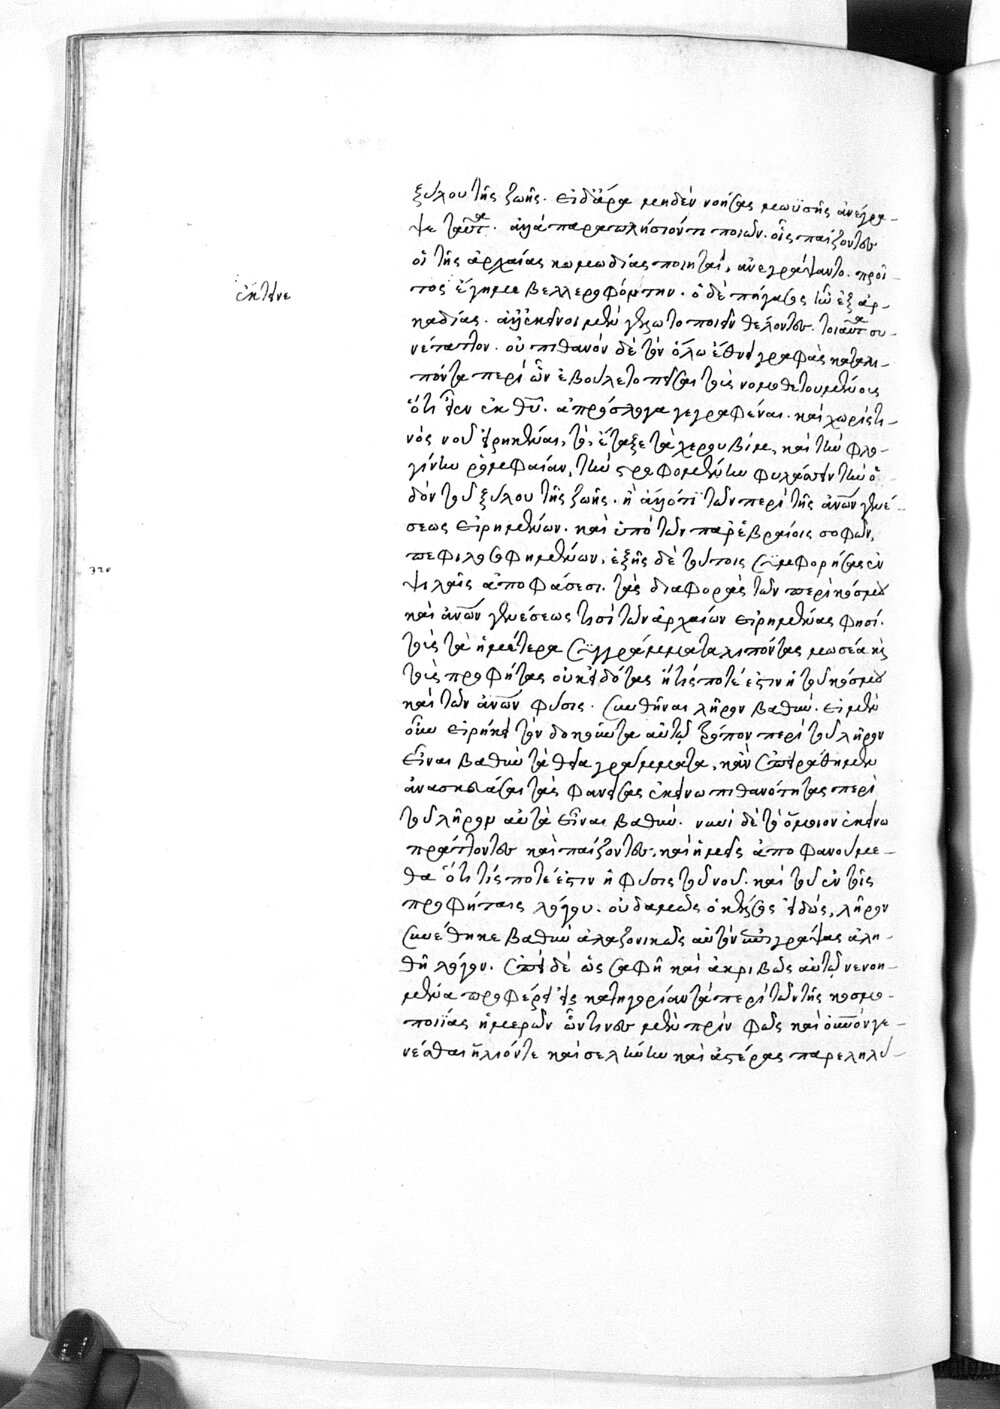 ξύλου τῆς ζωῆς. εἰδἄρα μηδὲν νοήσας μωϋσῆς ἀνέγρα-
ψε ταῦτα. ἀλλὰ παραπλήσιόν τι ποιῶν. οἷς παίζοντες
οἱ τῆς ἀρχαίας κωμωδίας ποιηταὶ, ἀνεγράψαντο. προῖ-
τος ἔγημε βελλεροφόντην. ὁ δὲ πήγασος ἦν ἐξ ἀρ-
ἐκεῖνε
καδίας. ἀλλ' ἐκεῖνοι μὲν γελωτοποιεῖν θέλοντες. τοιαῦτα συ-
νέταττον. οὐ πιθανὸν δὲ τὸν ὅλω ἔθνει γραφὰς καταλι-
πόντα περὶ ὧν ἐβούλετο πεῖσαι τοὺς νομοθετουμένους
ὅτι εἶεν ἐκ θυ. ἀπρόσλογα γεγραφέναι. καὶ χωρίς τι-
νὸς νοῦ εἰρηκέναι, τὸ, ἔταξε τὰ χερουβὶμ, καὶ τὴν φλο-
γίνην ῥομφαίαν, τὴν στρεφομένην φυλάττειν τὴν ὁ-
δὸν τοῦ ξύλου τῆς ζωῆς. ἢ ἄλλό τι τῶν περὶ τῆς ἀνῶν γενέ-
σεως εἰρημένων. καὶ ὑπὸ τῶν παρ ἑβραίοις σοφῶν,
πεφιλοσοφημένων, ἑξῆς δὲ τούτοις συμφορήσας ἐν
ψιλαῖς ἀποφάσεσι. τὰς διαφορὰς τῶν περὶ κόσμου
καὶ ἀνῶν γενέσεως τισὶ τῶν ἀρχαίων εἰρημένας φησί.
τοὺς τὰ ἡμέτερα συγγράμματα λιπόντας μωσέα κὶ
τοὺς προφήτας οὐκ εἰδότας ἥτις ποτέ ἐστιν ἡ τοῦ κόσμου
καὶ τῶν ἀνῶν φύσις. συνθεῖναι λῆρον βαθύν. εἰ μὲν
οὖν εἰρήκει τὸν δοκοῦντα αὐτῷ τρόπον περὶ τοῦ λῆρον
εἶναι βαθὺν τὰ θεῖα γράμματα, κἂν ἐπειράθημεν
ἀνασκευάσαι τὰς φανείσας ἐκείνω πιθανότητας περὶ
τοῦ λῆρον αὐτὰ εἶναι βαθύν. νυνὶ δὲ τὸ ὅμοιον ἐκείνω
πράττοντες καὶ παίζοντες, καὶ ἡμεῖς ἀποφανούμε-
θα ὅτι τίς ποτέ ἐστιν ἡ φύσις τοῦ νοῦ. καὶ τοῦ ἐν τοῖς
προφήταις λόγου. οὐδαμῶς ὁ κέλσος εἰδὼς, λῆρον
συνέθηκε βαθὺν ἀλαζονικῶς αὐτὸν ἐπιγράψας ἀλη-
θῆ λόγον. ἐπεὶ δὲ ὡς σαφῆ καὶ ἀκριβῶς αὐτῷ νενοη-
μένα προφέρει εἰς κατηγορίαν τὰ περὶ τῶν τῆς κοσμο-
ποιΐας ἡμερῶν ὧν τινες μὲν πρὶν φῶς καὶ οὐνὸν γε-
νέσθαι ἥλιόν τε καὶ σελήνην καὶ ἀστέρας παρεληλύ-